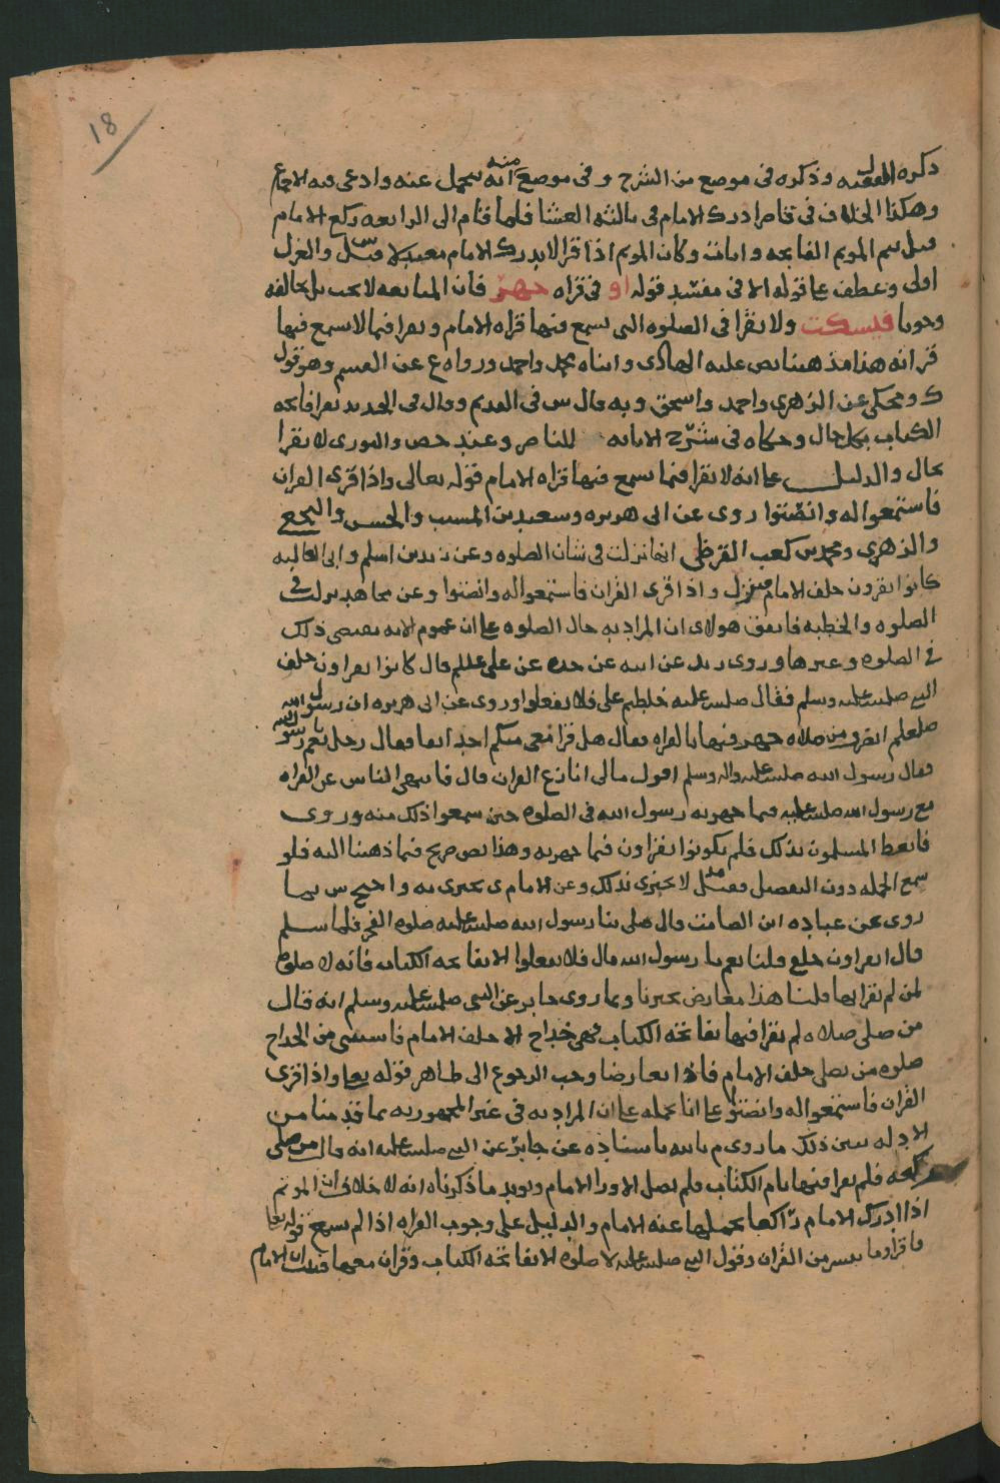 18
ذكره الفقيه ل وذكره في موضع من الشرح وفي موضع منه انه يتحمل عنه وادعى فيه الاجماع
وهكذا الخلاف في من ادرك الامام في ثالثة العشا فلما قام الى الرابعه ركع الامام
قبل يتم الموتم الفاتحه وكان الموتم اذا قرا لا يدرك الامام معتدلا والعزل
اولى وعطف على قوله الا في مفسد قوله او في قراه جهر فان المتابعه لا تجب بل يخالفه
وجوبا فيسكت ولا يقرا في الصلوه التي يسمع فيها قراه الامام ويقرا فيما لا يسمع فيها
قرائه هذا مذهبنا نص عليه الهادي وابناه محمد واحمد ورواه ع عن القسم وهو قول
ك ومحكي عن الزهري واحمد واسحق وبه قال س في القديم وقال في الجديد يقرا فاتحه
الكتاب بكل حال وحكاه في شرح الابانه للناصر وعند حص والثوري لا يقرا
بحال والدليل على انه لا يقرا فيما يسمع فيها قراه الامام قوله تعالى واذا قرى القران
فاستمعوا له وانصتوا روى عن ابي هريره وسعيد بن المسيب والحسن والنخعي
والزهري ومحمد بن كعب القرظي انها نزلت في شان الصلوه وعن زيد بن اسلم وابي العاليه
كانوا يقرون خلف الامام فنزل واذا قرى القران فاستمعوا له وانصتوا وعن مجاهد نزلت في
الصلوه والخطبه فاتفق هولاى ان المراد به حال الصلوه على ان عموم الايه يقتضي ذلك
في الصلوه وغيرها وروى زيد عن ابيه عن جده عن علي عللم قال كانوا يقراون خلف
النبي صلى الله عليه وسلم فقال صلى الله عليه خلطتم علي فلا تفعلوا وروى عن ابي هريره ان رسول الله
صلعلم انصرف من صلاه جهر فيها بالقراه فقال هل قرا معي منكم احد انفا فقال رجل نعم يا رسول الله
فقال رسول الله صلى الله عليه واله وسلم اقول مالي انازع القران قال فانتهى الناس عن القراه
مع رسول الله صلى الله عليه فيما جهر به رسول الله في الصلوه حين سمعوا ذلك منه وروى
فاتعظ المسلمون بذلك فلم يكونوا يقراون فيما جهر به وهذا نص صريح فيما ذهبنا اليه فلو
سمع الجمله دون التفصيل فقيل لا يجزي ذلك وعن الامام ى يجزى به واحتج س بما
روى عن عباده ابن الصامت قال صلى بنا رسول الله صلى الله عليه صلوه الفجر فلما سلم
قال اتقراون خلفي قلنا نعم يا رسول الله قال فلا تفعلوا الا بفاتحه الكتاب فانه لا صلوه
لمن لم يقرا بها قلنا هذا معارض بخبرنا وبما روى جابر عن النبي صلى الله عليه وسلم انه قال
من صلى صلاه لم يقرا فيها بفاتحه الكتاب فهي خداج الا خلف الامام فاستثنى من الخداج
صلوه من يصلي خلف الامام فاذا تعارضا وجب الرجوع الى ظاهر قوله تعا واذا قرى
القران فاستمعوا له وانصتوا على انا نحمله على ان المراد به في غير المجهور به بما قدمنا من
الادله يبين ذلك ما روى م بالله باسناده عن جابر عن النبي صلى الله عليه انه قال من صلى
ركعه فلم يقرا فيها بام الكتاب فلم يصل الا ورا الامام ويويد ما ذكرناه انه لا خلاف ان الموتم
اذا ادرك الامام راكعا يحملها عنه الامام والدليل على وجوب القراه اذا لم يسمع قوله تعا
فاقراوا ما تيسر من القران وقول النبي صلى الله عليه لا صلوه الا بفاتحه الكتاب وقران معها الامام